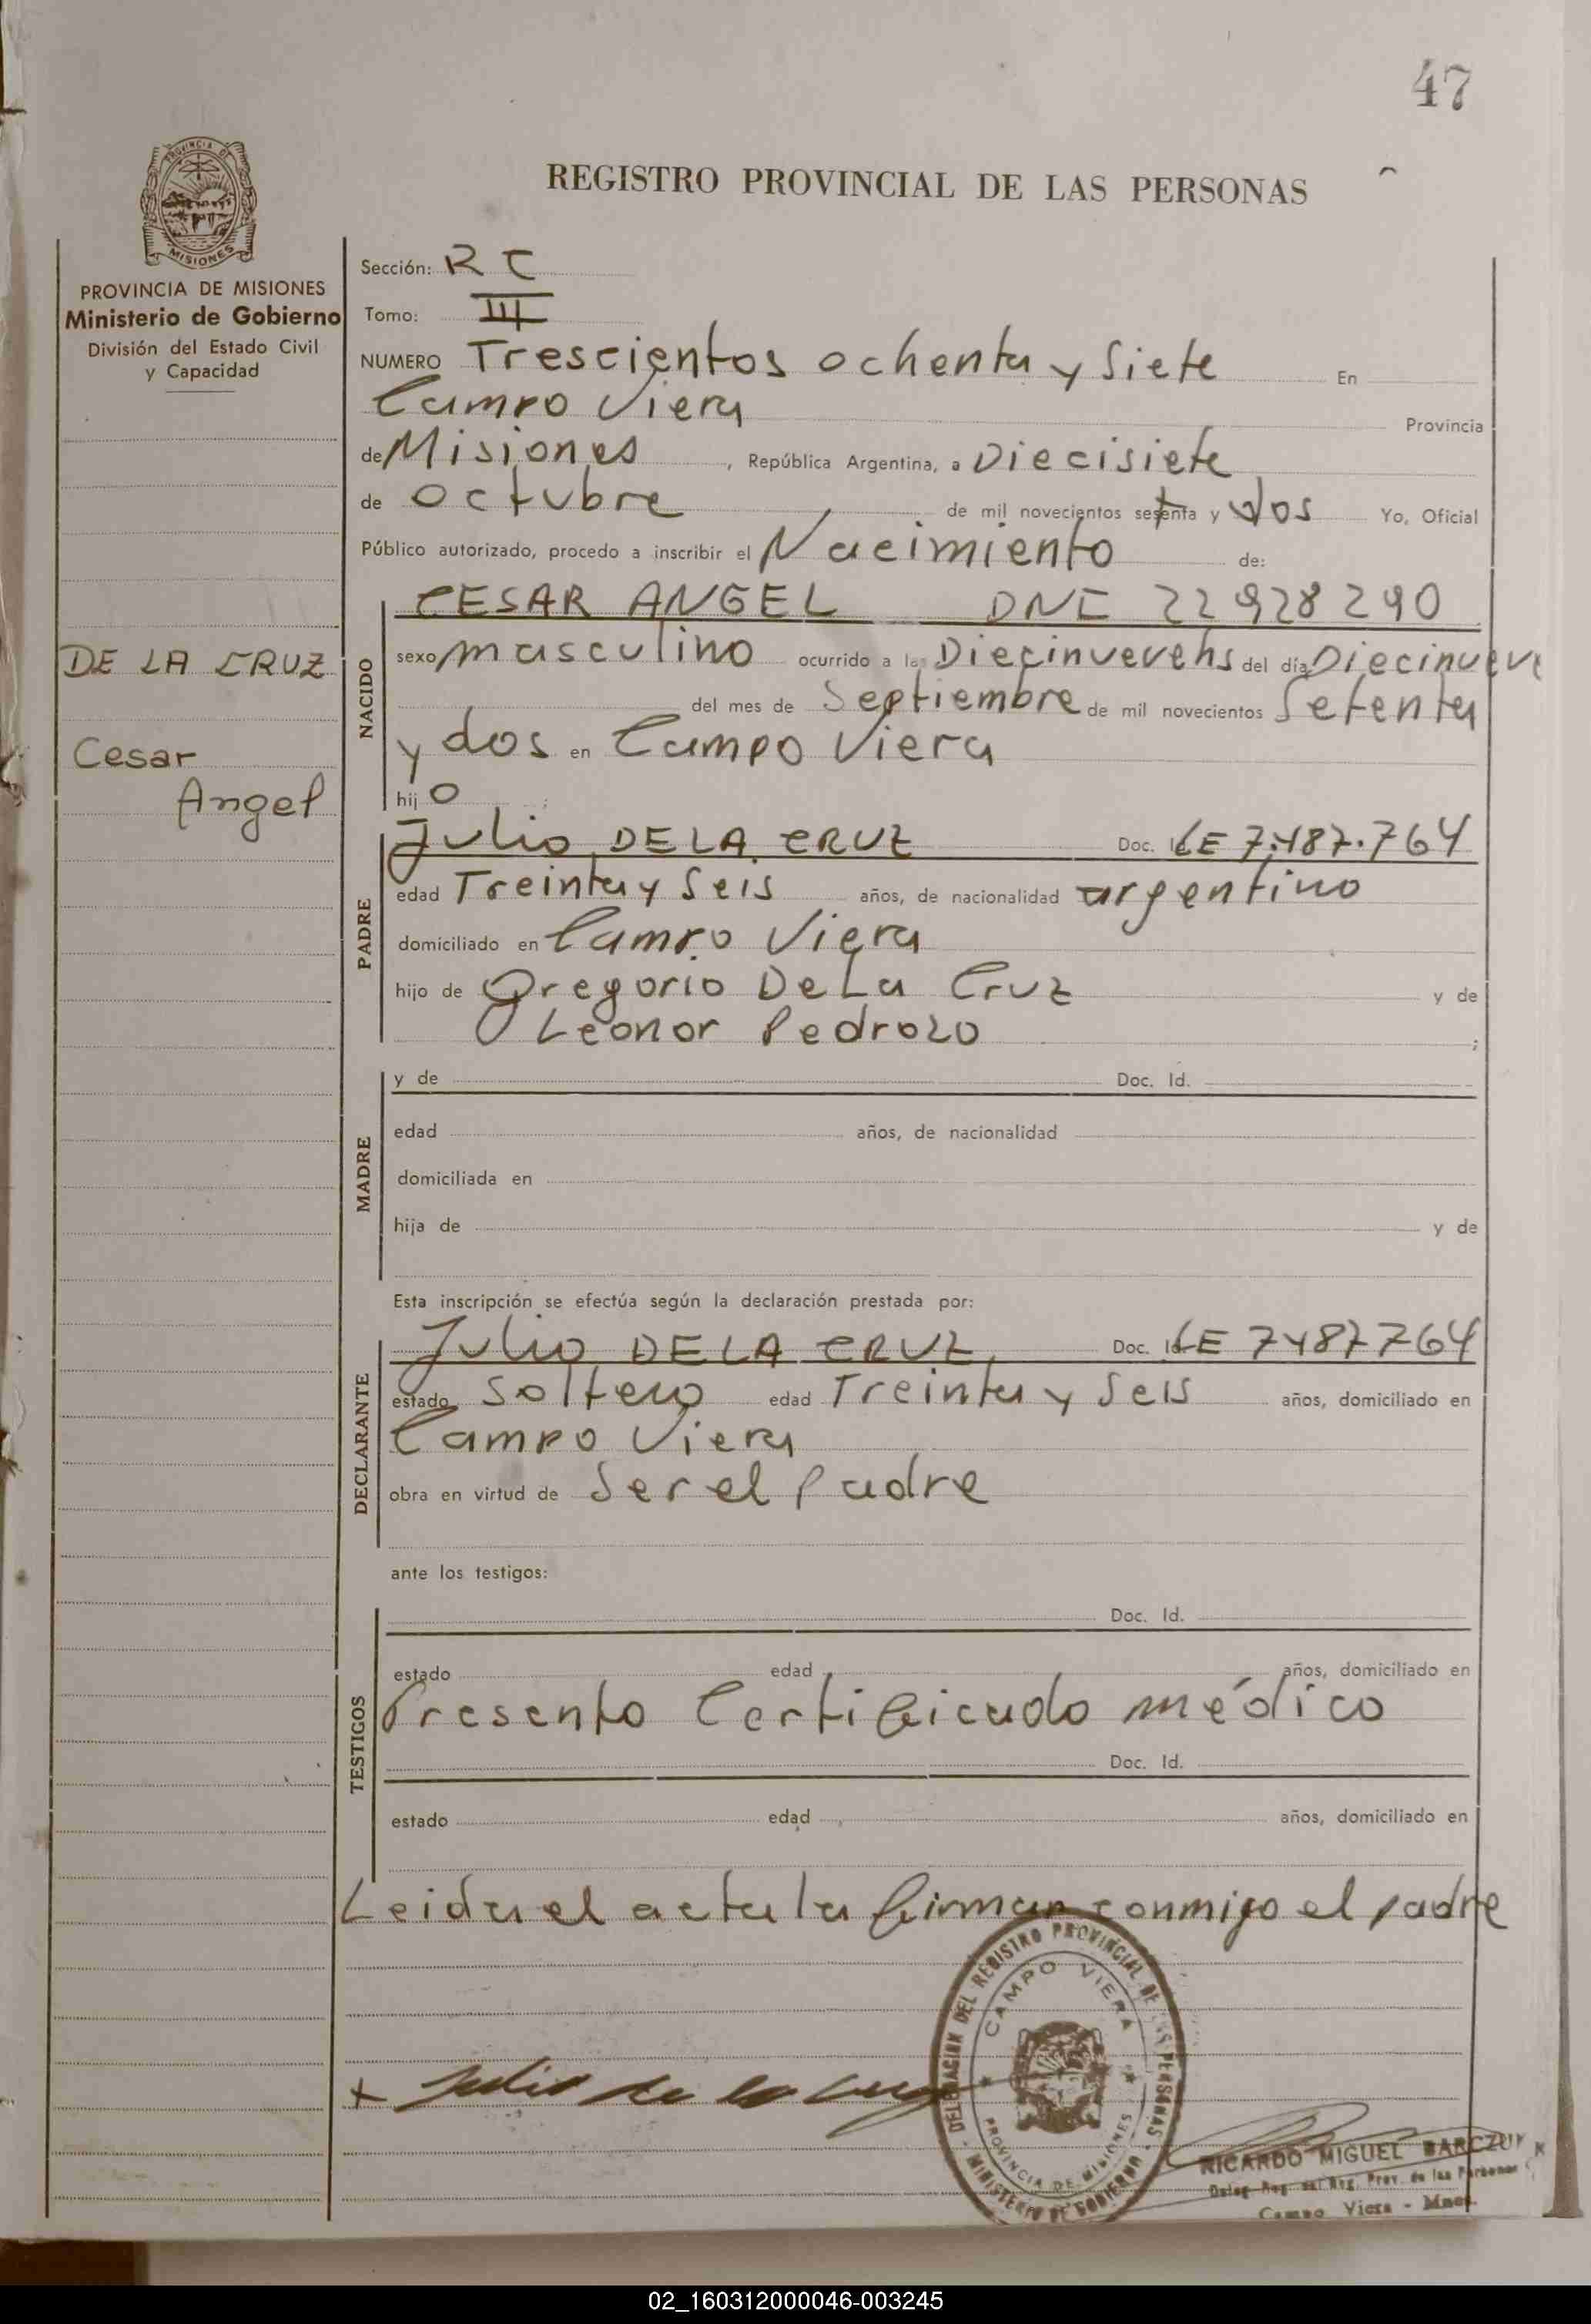 47
REGISTRO PROVINCIAL DE LAS PERSONAS
PROVINCIA DE
MISIONES
PROVINCIA DE MISIONES
Ministerio de Gobierno
División del Estado Civil
y Capacidad
DE LA CRUZ
Cesar
Angel
Sección: R C
Tomo: III
NUMERO Trescientos ochenta y Siete En
Campo Viera Provincia
de Misiones, República Argentina, a Diecisiete
de octubre de mil novecientos setenta y dos Yo, Oficial
Público autorizado, procedo a inscribir el Nacimiento de:
NACIDO
CESAR ANGEL DNI 22 928 290
sexo masculino ocurrido a las Diecinueve hs del día Diecinueve
del mes de Septiembre de mil novecientos Setenta
y dos en Campo Viera
hij o ;
PADRE
Julio DE LA CRUZ Doc. LE 7.487.764
edad Treinta y Seis años, de nacionalidad argentino
domiciliado en Campo Viera
hijo de Gregorio De La Cruz y de
Leonor Pedrozo ;
MADRE
y de Doc. Id.
edad años, de nacionalidad
domiciliada en
hija de y de
Esta inscripción se efectúa según la declaración prestada por:
DECLARANTE
Julio DE LA CRUZ, Doc. Id. LE 7487764
estado Soltero edad Treinta y Seis años, domiciliado en
Campo Viera
obra en virtud de Ser el padre
ante los testigos:
TESTIGOS
Doc. Id.
estado edad años, domiciliado en
Presento Certificado médico
Doc. Id.
estado edad años, domiciliado en
Leida el acta la firman conmigo el padre
x Julio de la Cruz
DELEGACION DEL REGISTRO PROVINCIAL DE LAS PERSONAS
CAMPO VIERA
PROVINCIA DE MISIONES
MINISTERIO DE GOBIERNO
RICARDO MIGUEL BARCZUK
Deleg. Reg. del Reg. Prov. de las Personas
Campo Viera - Mnes.
02_160312000046-003245